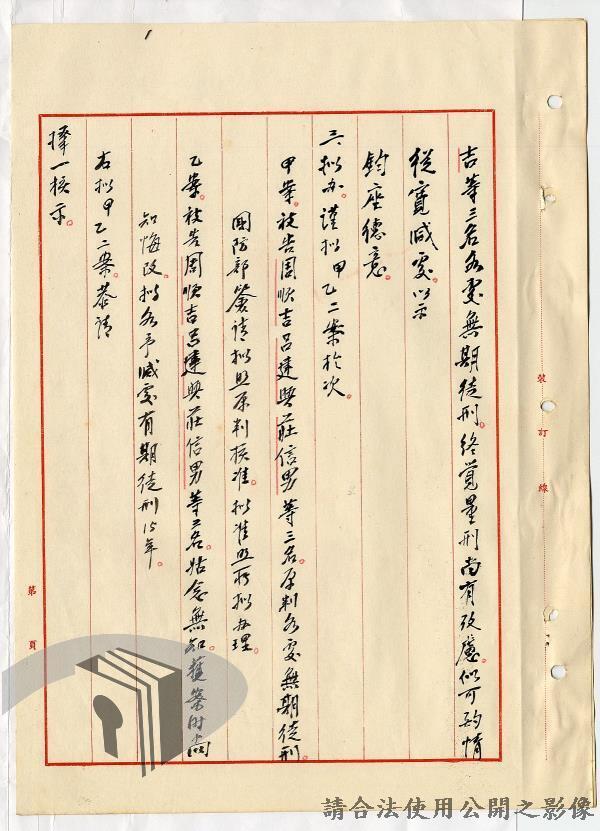 吉等三名各處無期徒刑。終覺量刑尚有攷慮。似可酌情
從寬減處。以示
鈞座德意。
三、拟办。謹拟甲乙二案於次。
甲案。被告周順吉呂建興莊信男等三名。原判各處無期徒刑
國防部簽請拟照原判核准。拟准照所拟办理。
乙案。被告周順吉呂建興莊信男等三名。姑念無知。獲案時尚
知悔改。拟各予減處有期徒刑15年。
右拟甲乙二案。恭請
擇一核示。
裝訂線
第 頁
請合法使用公開之影像